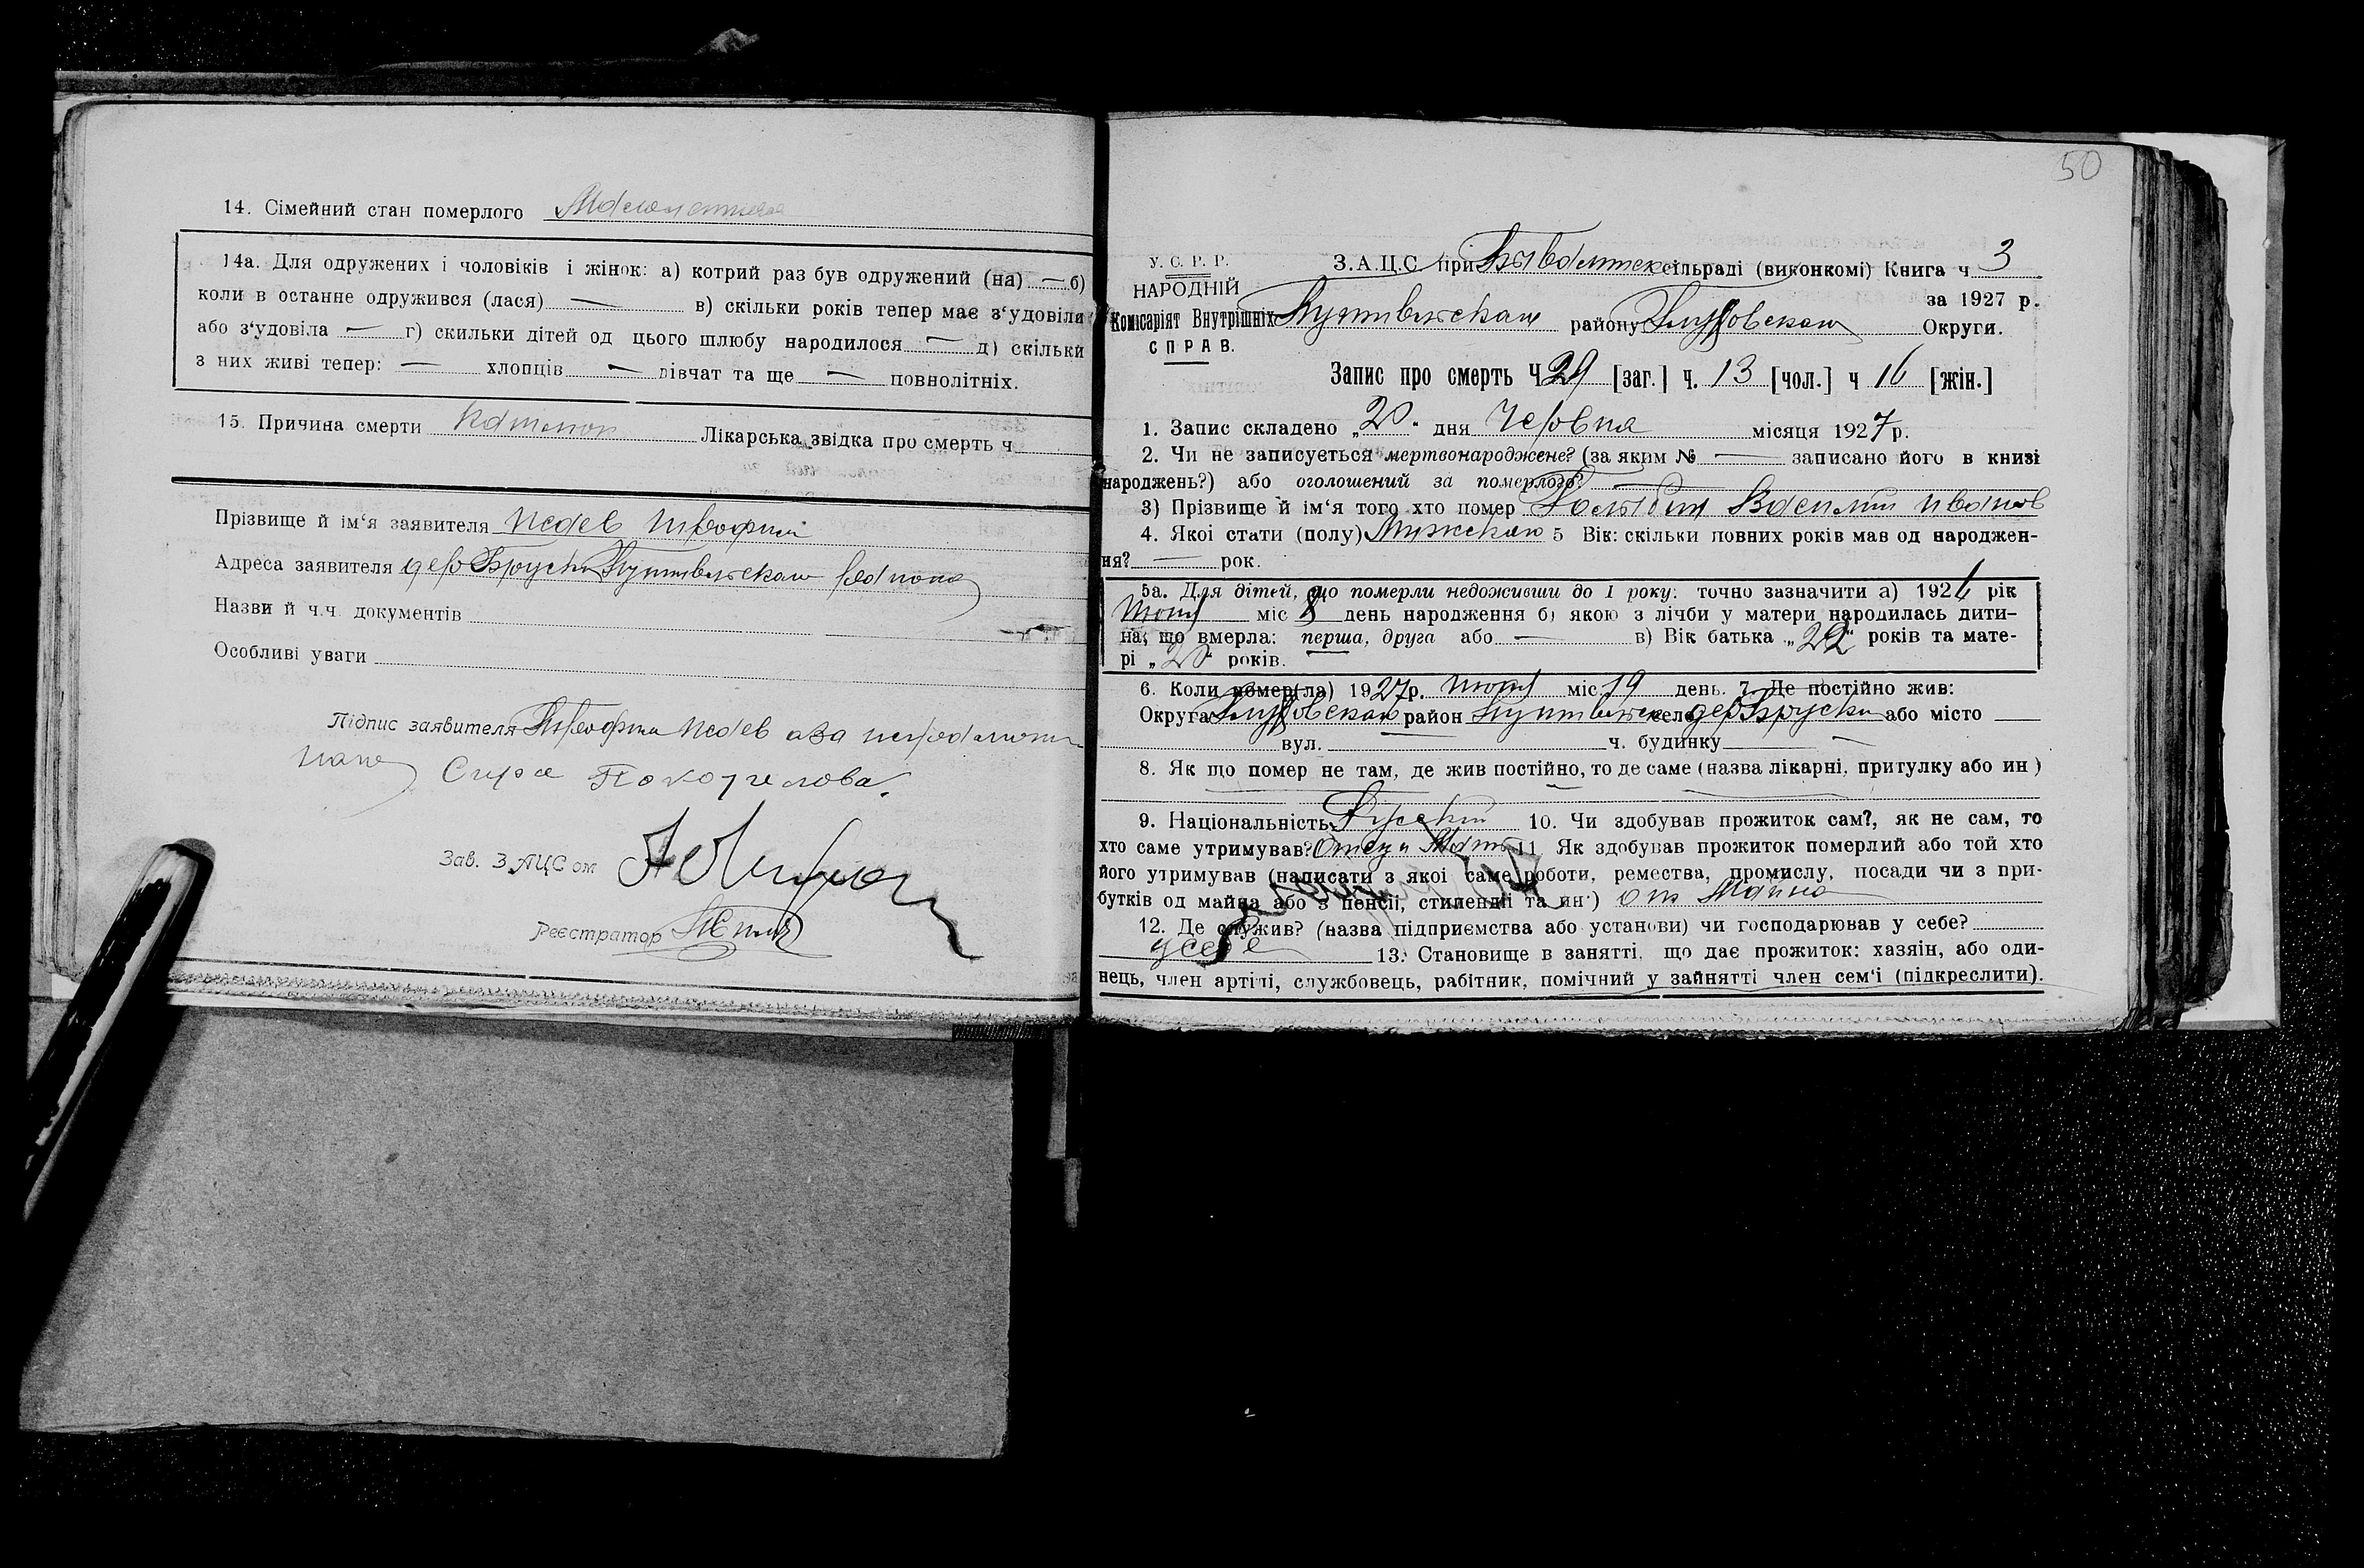 14. Сімейний стан померлого
14а. Для одружених і чоловіків і жінок: а) котрий раз був одружений (на) — б)
коли в останне одружився (лася) — в) скільки років тепер має з‘удовіли
або з‘удовіла — г) скильки дітей од цього шлюбу народилося — д) скільки
з них живі тепер: — хлопців — дівчат та ще — повнолітніх.
15. Причина смерти Лікарська звідка про смерть ч
Прізвище й ім‘я заявителя
Адреса заявителя дер Бруски Путивльскаи району
Назви й ч.ч. документів
Особливі уваги
Підпис заявителя
Зав. ЗАЦСом
Реєстратор
50
У. С. Р. Р.
НАРОДНІЙ
Комісаріят Внутрішніх
СПРАВ.
З.А.Ц.С при сільраді (виконкомі) Книга ч 3
за 1927 р.
Путивльскаи району Глуховскаи Округи.
Запис про смерть Ч 29 [заг.] ч. 13 [чол.] ч 16 [жін.]
1. Запис складено „20“ дня Червня місяця 1927 р.
2. Чи не записується мертвонароджене? (за яким № — записано його в книзі
народжень?) або оголошений за померлого? —
3) Прізвище й ім‘я того хто помер
4. Якоі стати (полу) Мужскаи 5 Вік: скільки повних років мав од народжен-
ня? — рок.
5а. Для дітей, що померли недоживши до 1 року: точно зазначити а) 192 рік
міс 8 день народження б) якою з лічби у матери народилась дити-
на, що вмерла: перша, друга або — в) Вік батька „22“ років та мате-
рі „20“ років.
6. Коли помер(ла) 1927 р. міс. 19 день. 7. Де постійно жив:
Округа Глуховскаи район Путивльск село дер Бруски або місто —
вул. ч. будинку —
8. Як що помер не там, де жив постійно, то де саме (назва лікарні, притулку або ин)
9. Національність Русский 10. Чи здобував прожиток сам?, як не сам, то
хто саме утримував? Отец и Мать 11 Як здобував прожиток померлий або той хто
його утримував (написати з якоі саме роботи, ремества, промислу, посади чи з при-
бутків од майна або з пенсіі, стипендіі та ин·)
12. Де служив? (назва підприємства або установи) чи господарював у себе?
у себе 13. Становище в занятті, що дає прожиток: хазяін, або оди-
нець, член артілі, службовець, рабітник, помічний у зайнятті член сем‘і (підкреслити).